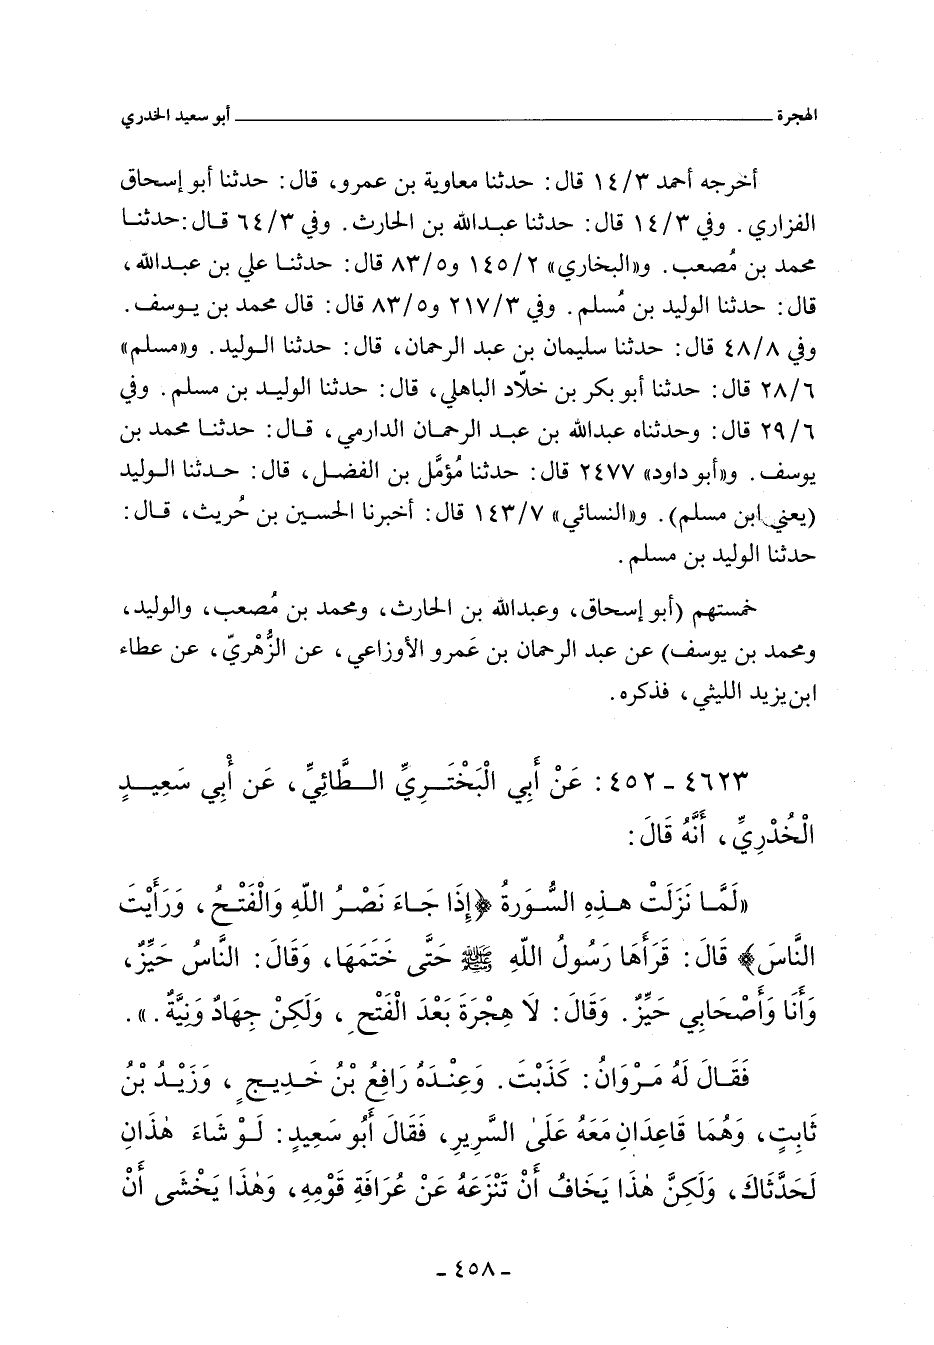 الهجرة ـــــــــــــــــــــــــــــــــ أبو سعيد الخدري
أخرجه أحمد ١٤/٣ قال: حدثنا معاوية بن عمرو، قال: حدثنا أبو إسحاق
الفزاري. وفي ١٤/٣ قال: حدثنا عبدالله بن الحارث. وفي ٦٤/٣ قال: حدثنا
محمد بن مُصعب. و«البخاري» ١٤٥/٢ و٨٣/٥ قال: حدثنا علي بن عبدالله،
قال: حدثنا الوليد بن مُسلم. وفي ٢١٧/٣ و٨٣/٥ قال: قال محمد بن يوسف.
وفي ٤٨/٨ قال: حدثنا سليمان بن عبد الرحمان، قال: حدثنا الوليد. و«مسلم»
٢٨/٦ قال: حدثنا أبو بكر بن خلّاد الباهلي، قال: حدثنا الوليد بن مسلم. وفي
٢٩/٦ قال: وحدثناه عبدالله بن عبد الرحمان الدارمي، قال: حدثنا محمد بن
يوسف. و«أبو داود» ٢٤٧٧ قال: حدثنا مُؤمَّل بن الفضل، قال: حدثنا الوليد
(يعني ابن مسلم). و«النسائي» ١٤٣/٧ قال: أخبرنا الحسين بن حُريث، قال:
حدثنا الوليد بن مسلم.
خمستهم (أبو إسحاق، وعبدالله بن الحارث، ومحمد بن مُصعب، والوليد،
ومحمد بن يوسف) عن عبد الرحمان بن عَمرو الأوزاعي، عن الزُّهْريّ، عن عطاء
ابن يزيد الليثي، فذكره.
٤٦٢٣ - ٤٥٢: عَنْ أَبِي الْبَخْتَرِيِّ الطَّائِيِّ، عَن أَبِي سَعِيدٍ
الْخُدْرِيِّ، أَنَّهُ قَالَ:
«لَمَّا نَزَلَتْ هذِهِ السُّورَةُ ﴿إِذَا جَاءَ نَصْرُ اللّهِ وَالْفَتْحُ، وَرَأَيْتَ
النَّاسَ﴾ قَالَ: قَرَأَهَا رَسُولُ اللّهِ ﷺ حَتَّى خَتَمَهَا، وَقَالَ: النَّاسُ حَيِّزٌ،
وَأَنَا وَأَصْحَابِي حَيِّزٌ. وَقَالَ: لَا هِجْرَةَ بَعْدَ الْفَتْحِ، وَلَكِنْ جِهَادٌ وَنِيَّةٌ.».
فَقَالَ لَهُ مَرْوَانُ: كَذَبْتَ. وَعِنْدَهُ رَافِعُ بْنُ خَدِيجٍ، وَزَيْدُ بْنُ
ثَابِتٍ، وَهُمَا قَاعِدَانِ مَعَهُ عَلَى السَّرِيرِ، فَقَالَ أَبُو سَعِيدٍ: لَوْ شَاءَ هٰذَانِ
لَحَدَّثَاكَ، وَلَكِنَّ هٰذَا يَخَافُ أَنْ تَنْزَعَهُ عَنْ عُرَافَةِ قَوْمِهِ، وَهٰذَا يَخْشَى أَنْ
- ٤٥٨ -